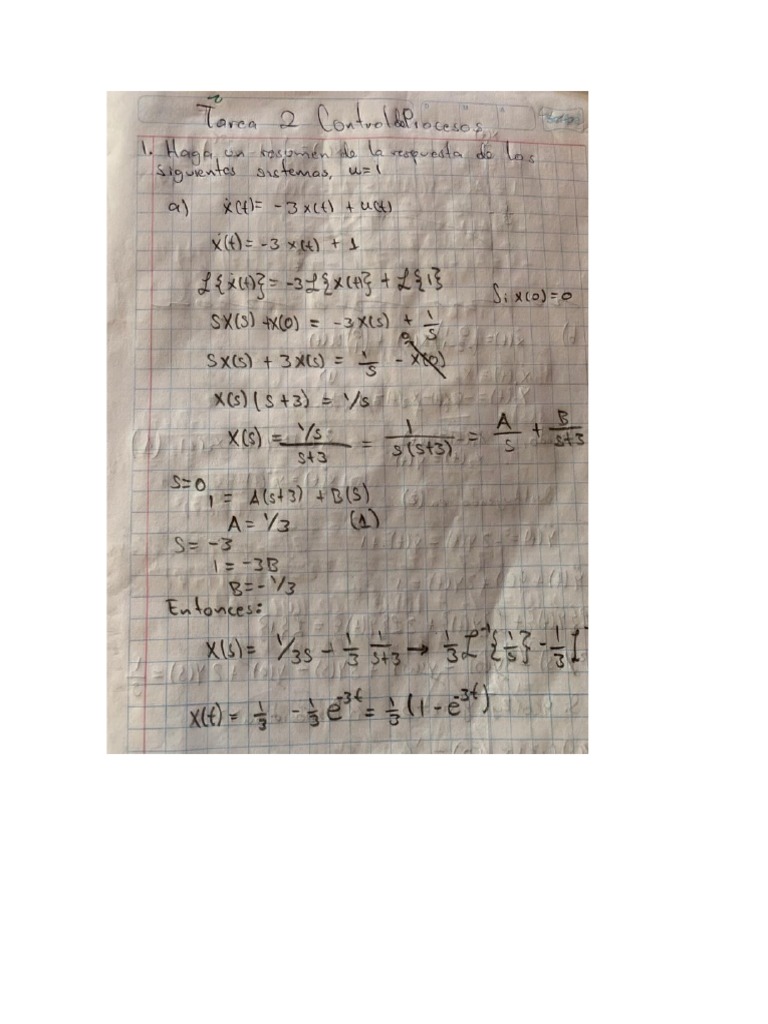 Tarea 2 Control de Procesos
1. Haga un resumen de la respuesta de los
siguientes sistemas, u=1
a) ẋ(t)= -3x(t) + u(t)
ẋ(t)= -3x(t) + 1
ℒ{ẋ(t)}= -3ℒ{x(t)} + ℒ{1}
Si x(0)=0
SX(s) +x(0) = -3X(s) + 1/s
SX(s) + 3X(s) = 1/s - x(0) 0
X(s)(s+3) = 1/s
X(s) = (1/s)/(s+3) = 1/(s(s+3)) = A/s + B/(s+3)
s=0
1 = A(s+3) + B(s)
A = 1/3 (1)
s= -3
1 = -3B
B= -1/3
Entonces:
X(s)= 1/3s - 1/3 1/(s+3) → 1/3 ℒ⁻¹{1/s} - 1/3 ℒ⁻
x(t) = 1/3 - 1/3 e^-3t = 1/3 (1 - e^-3t)